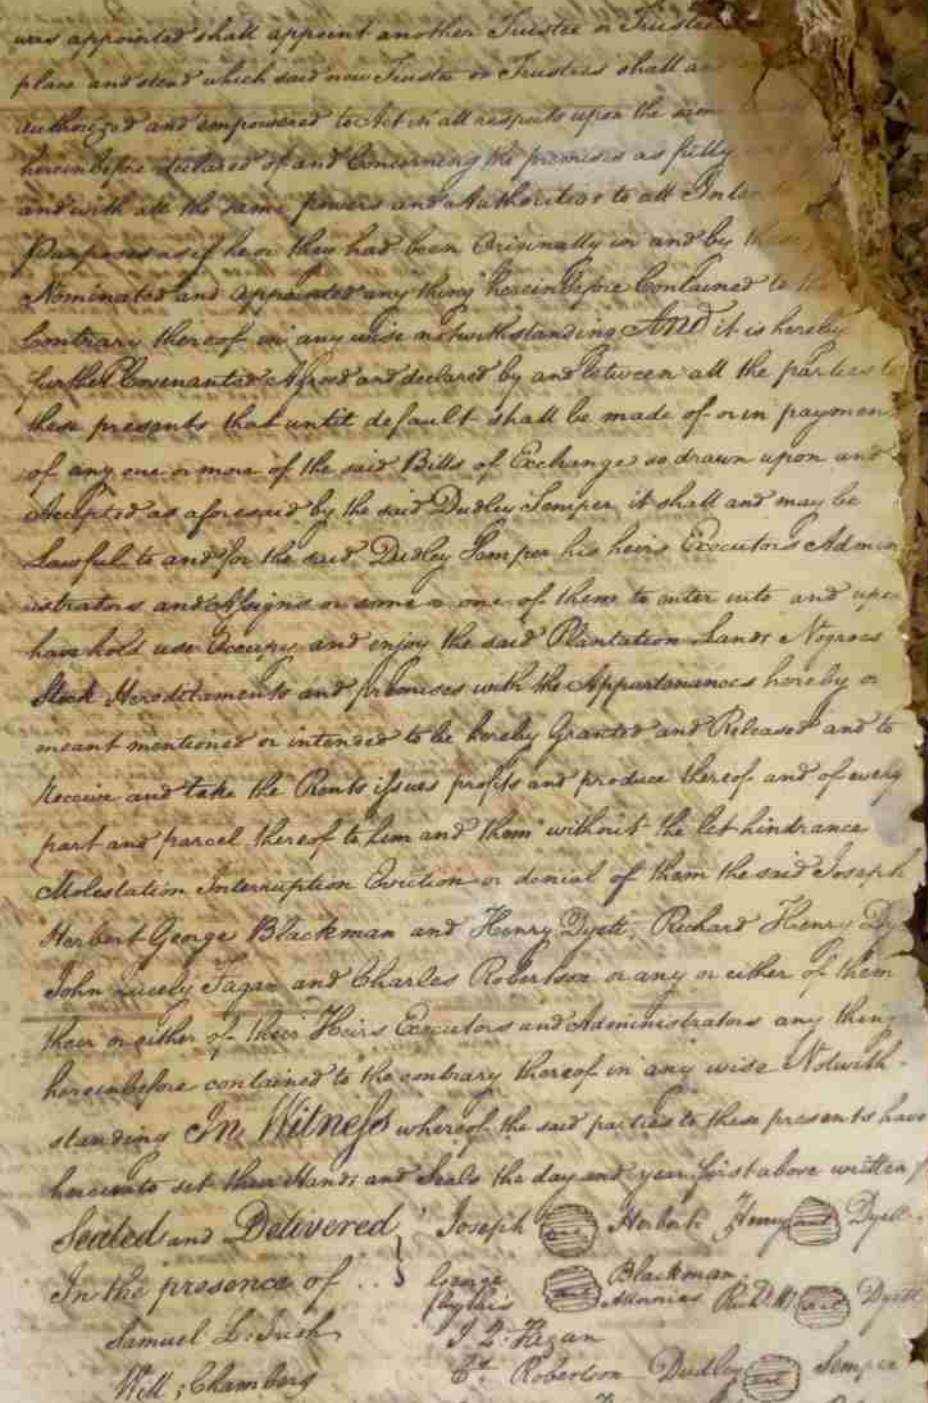 was appointed shall appoint another Trustee or Trustees
place and stead which said new Trustee or Trustees shall
authorized and empowered to Act in all respects upon the same
hereinbefore declared of and Concerning the premises as fully
and with all the same powers and Authorities to all
Purposes as if he or they had been Originally in and by these
Nominated and appointed any thing hereinbefore Contained to the
Contrary thereof in any wise notwithstanding And it is hereby
further Covenanted Agreed and declared by and between all the parties to
these presents that until default shall be made of or in payment
of any one or more of the said Bills of Exchange so drawn upon and
Accepted as aforesaid by the said Dudley Semper it shall and may be
Lawful to and for the said Dudley Semper his heirs Executors Admin
istrators and Assigns or some or one of them to enter into and upon
have hold use Occupy and enjoy the said Plantation Lands Negroes
Stock Hereditaments and premises with the Appurtenances hereby or
meant mentioned or intended to be hereby Granted and Released and to
Receive and take the Rents issues profits and produce thereof and of every
part and parcel thereof to him and them without the let hindrance
Molestation Interruption Eviction or denial of them the said Joseph
Herbert George Blackman and Henry Dyett, Richard Henry Dy
John Fagan and Charles Robertson or any or either of them
their or either of their Heirs Executors and Administrators any thing
hereinbefore contained to the contrary thereof in any wise Notwith
standing In Witness whereof the said parties to these presents have
hereunto set their Hands and Seals the day and year first above written
Sealed and Delivered Joseph Herbert Henry Dyett
In the presence of .. George Blackman
Richd. H. Dyett
Samuel J. L. Fagan
Will; Chambers Cs. Robertson Dudley Semper